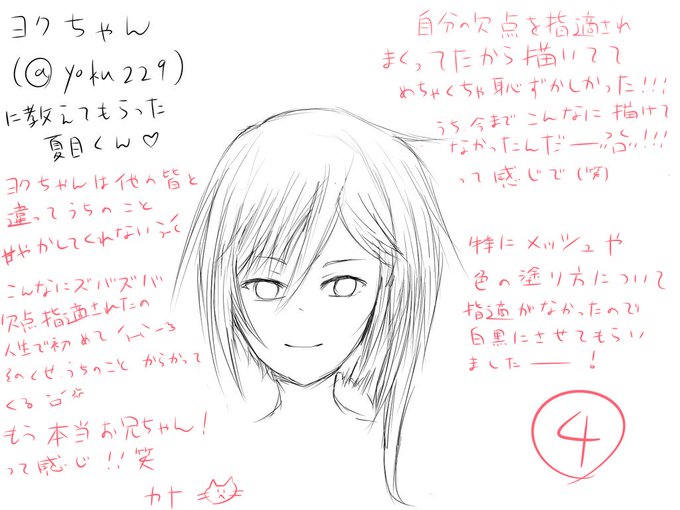 ヨクちゃん
(@yoku229)
に教えてもらった
夏目くん♡
ヨクちゃんは他の皆と
違ってうちのこと
甘やかしてくれない
こんなにズバズバ
欠点指適されたの
人生で初めて
そのくせうちのこと からかって
くる
もう本当お兄ちゃん!
って感じ!!笑
カナ
自分の欠点を指適され
まくってたから描いてて
めちゃくちゃ恥ずかしかった!!!
うち今までこんなに描けて
なかったんだー!!!
って感じで(笑)
特にメッシュや
色の塗り方について
指適がなかったので
白黒にさせてもらい
ましたー!
4